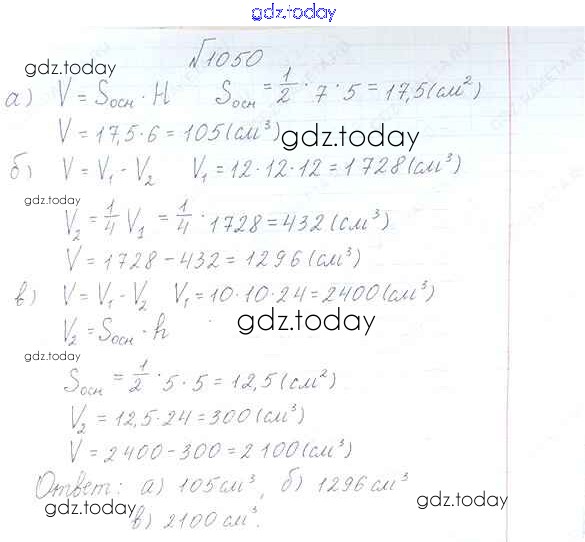 gdz.today
№1050
gdz.today
а) V = Sосн · H Sосн = 1/2 · 7 · 5 = 17,5 (см²)
V = 17,5 · 6 = 105 (см³)
gdz.today
б) V = V₁ - V₂ V₁ = 12 · 12 · 12 = 1728 (см³)
gdz.today
V₂ = 1/4 V₁ = 1/4 · 1728 = 432 (см³)
V = 1728 - 432 = 1296 (см³)
в) V = V₁ - V₂ V₁ = 10 · 10 · 24 = 2400 (см³)
gdz.today
V₂ = Sосн · h
gdz.today
Sосн = 1/2 · 5 · 5 = 12,5 (см²)
V₂ = 12,5 · 24 = 300 (см³)
V = 2400 - 300 = 2100 (см³)
Ответ: а) 105 см³, б) 1296 см³
gdz.today
gdz.today
в) 2100 см³.